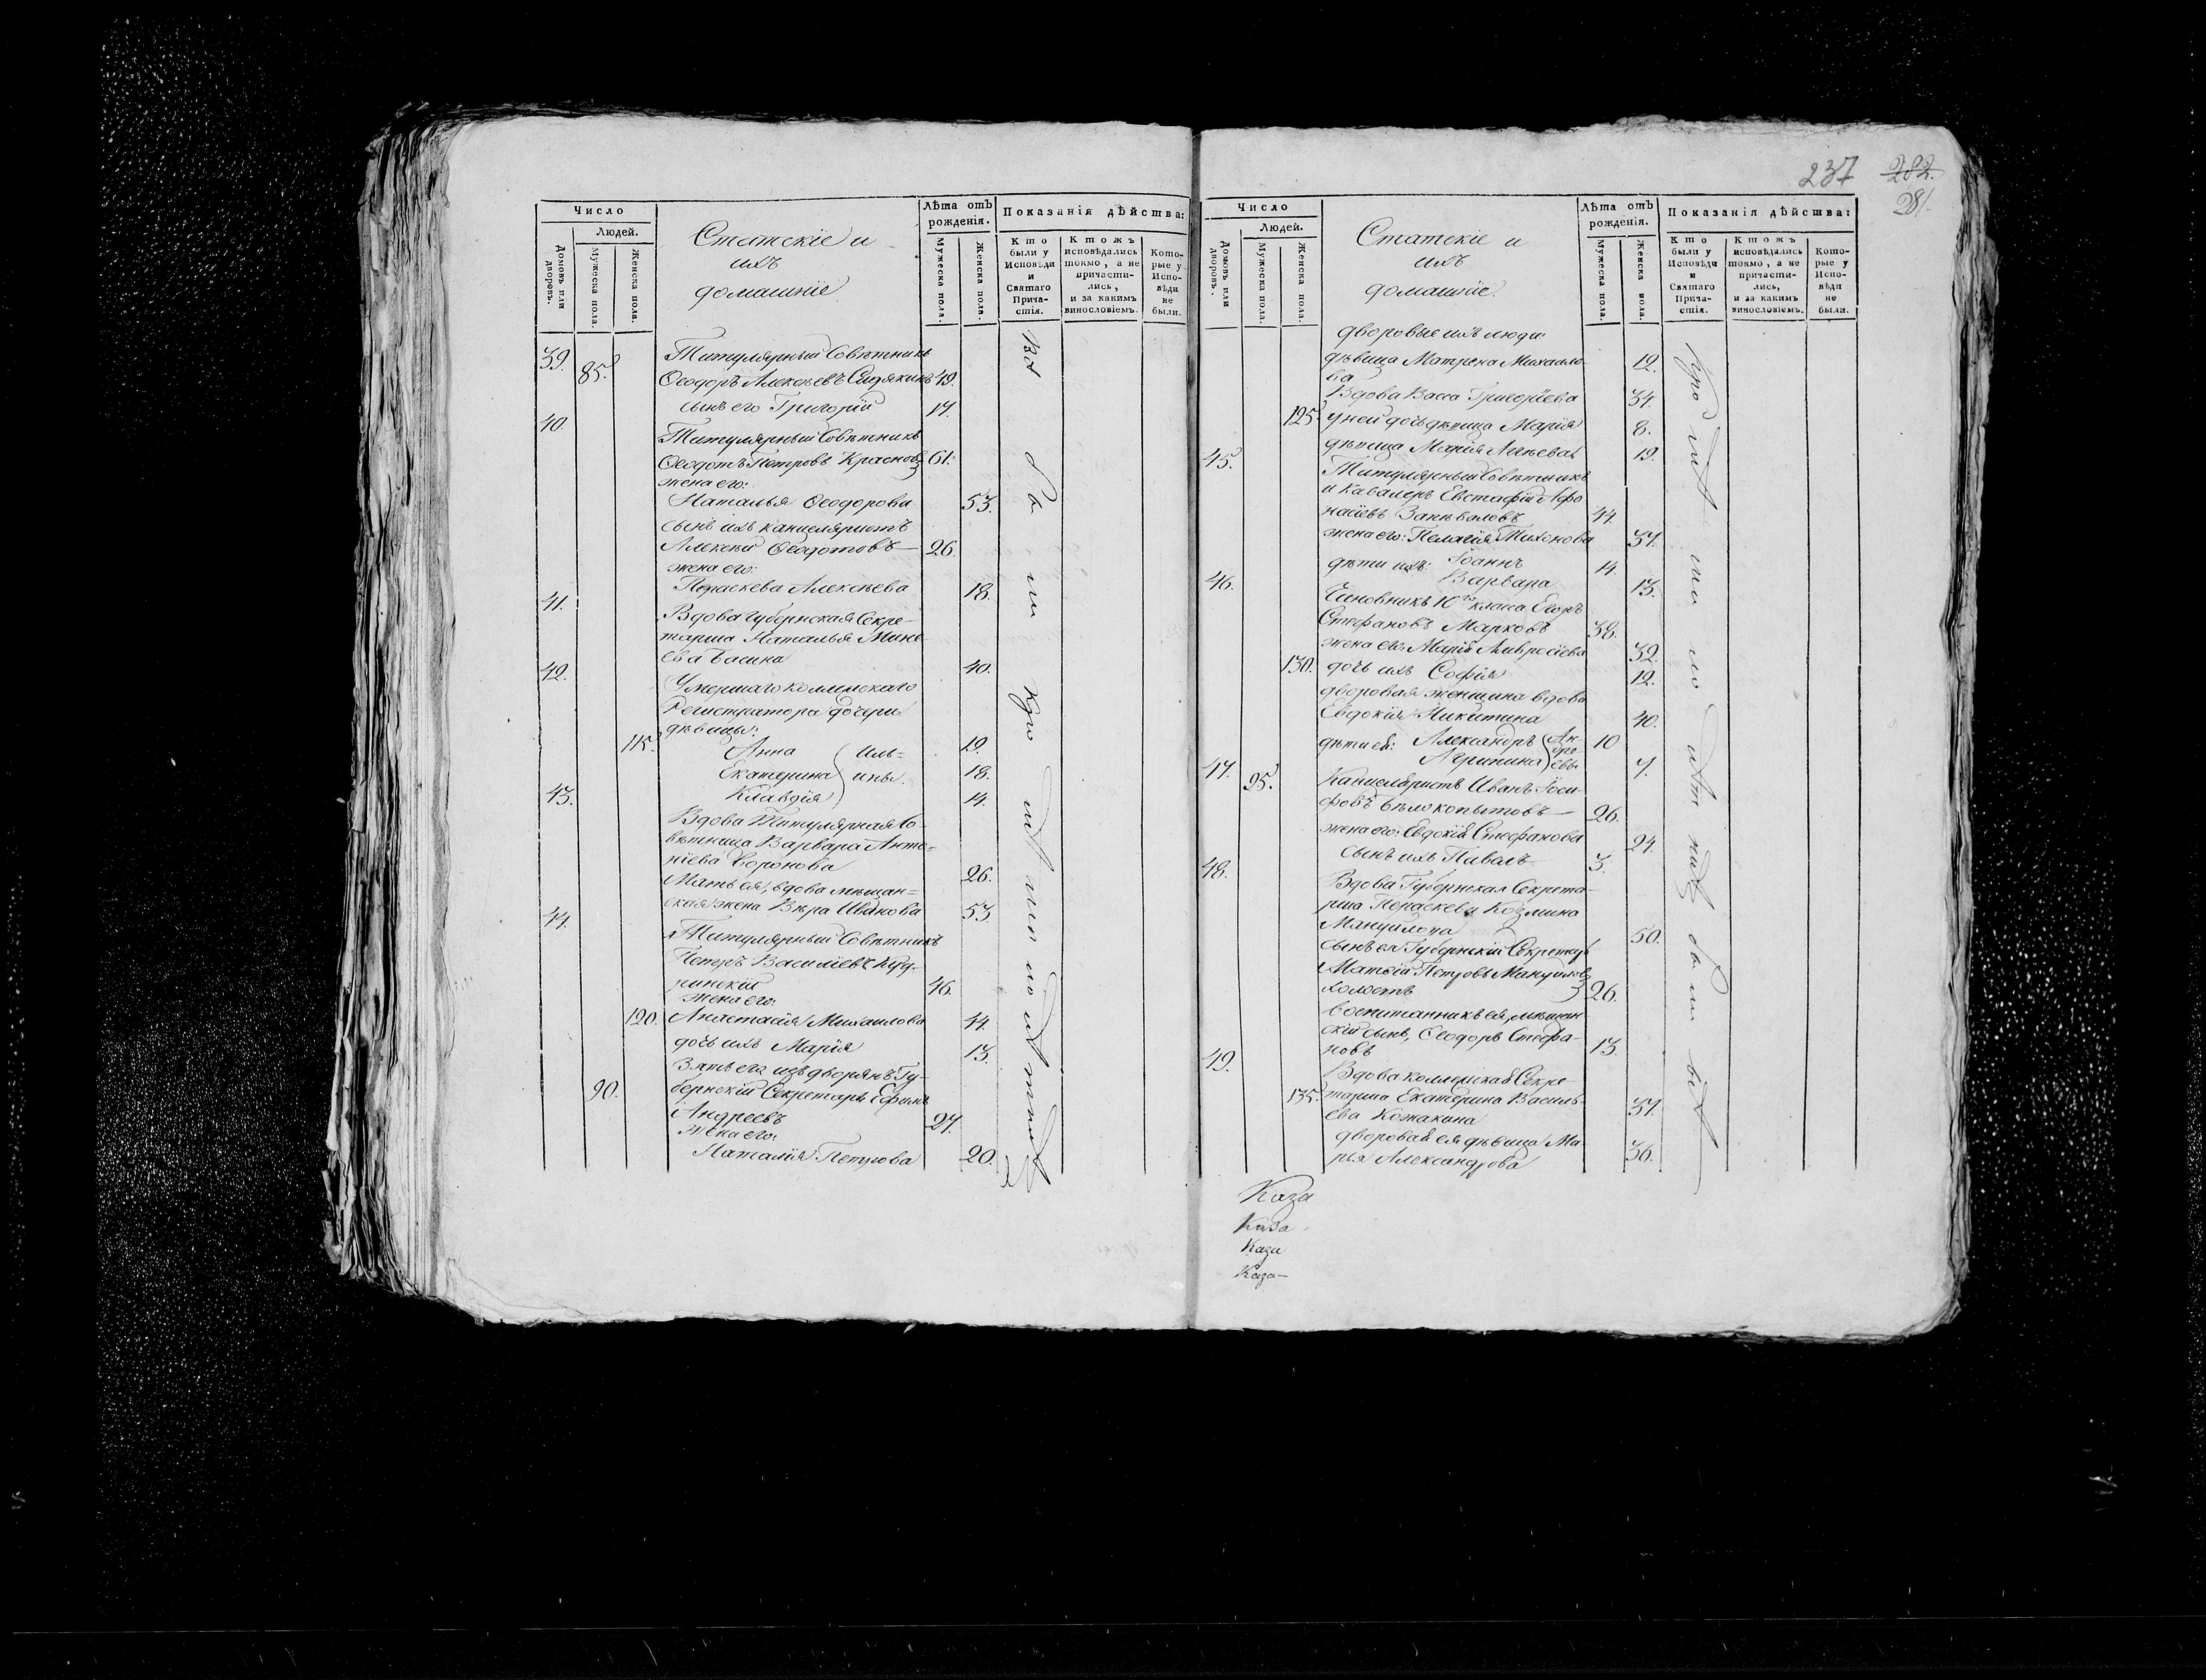 Число
Людей.
Домовъ или дворовъ.
Мужеска пола.
Женска пола.
Статскіе и
ихъ
домашніе.
Лѣта отъ рожденія.
Мужеска пола.
Женска пола.
Показанія дѣйства:
Кто были у Исповѣди и Святаго Причастія.
Ктожъ исповѣдались токмо, а не причастились, и за какимъ винословіемъ.
Которые у Исповѣди не были.
39. Титулярный Совѣтникъ
85. Ѳеодоръ Алексѣевъ 49.
сынъ его Григорій 17.
40.
Титулярный Совѣтникъ
Ѳеодотъ Петровъ Красновъ 61.
жена его:
Наталья Ѳеодорова 53.
сынъ ихъ канцеляристъ
Алексѣй Ѳеодотовъ 26.
жена его:
Параскева Алексѣева 18.
41.
Вдова Губернская Секре-
тарша Наталья Мине
ева 40.
42.
Умершаго коллежскаго
Регистратора дочери
дѣвицы:
115. Анна 19.
Екатерина 18.
Клавдія 14.
Иль-
ины.
43.
Вдова Титулярная Со-
вѣтница Варвара Анто-
ніева Воронова 26.
Мать ея, вдова мѣщан-
ская жена Вѣра Иванова 53.
44.
Титулярный Совѣтникъ
Петръ Василіевъ Куд-
ринскій 46.
жена его:
120. Анастасія Михаилова 44.
дочь ихъ Марія 13.
Зять его изъ дворянъ Гу-
90. бернскій Секретарь Ефимъ
Андреевъ 27.
жена его:
Наталія Петрова 20.
237
282.
281.
Число
Людей.
Домовъ или дворовъ.
Мужеска пола.
Женска пола.
Статскіе и
ихъ
домашніе.
Лѣта отъ рожденія.
Мужеска пола.
Женска пола.
Показанія дѣйства:
Кто были у Исповѣди и Святаго Причастія.
Ктожъ исповѣдались токмо, а не причастились, и за какимъ винословіемъ.
Которые у Исповѣди не были.
дворовые ихъ люди:
дѣвица Матрена Михаило 12.
ва
Вдова Васса Григорїева 34.
125. у ней дочь дѣвица Марія 8.
дѣвица Марія 19.
45.
Титулярный Совѣтникъ
и Кавалеръ Евстафій Афо
насіевъ 44.
жена его: Пелагія Тихонова 37.
дѣти ихъ: Іоаннъ 14.
Варвара 13.
46.
Чиновникъ 10го класса Егоръ
Стефановъ Марковъ 38.
жена его: Марія Амвросіева 32.
130. дочь ихъ Софія 12.
дворовая женщина вдова
Евдокія Никитина 40.
дѣти ея: Александръ 10
Агрипина 7.
Ан-
дре-
евы
47.
95. Канцеляристъ Иванъ Іоси
фовъ Бѣлокопытовъ 26.
жена его: Евдокія Стефанова 24.
сынъ ихъ Павелъ 3.
48.
Вдова Губернская Секрета-
рша Параскева Козмина
Мануилова 50.
сынъ ея Губернскій Секретарь
Матвій Петровъ Мануиловъ
холостъ 26.
воспитанникъ ея, мѣщан
скій сынъ, Ѳеодоръ Стефа-
новъ 13.
49.
Вдова коллежская Секре-
135. тарша Екатерина Василь-
ева Кожакина 37.
дворовая ея дѣвица Ма-
рья Александрова 36.
Каза
Каза
Каза
Каза-